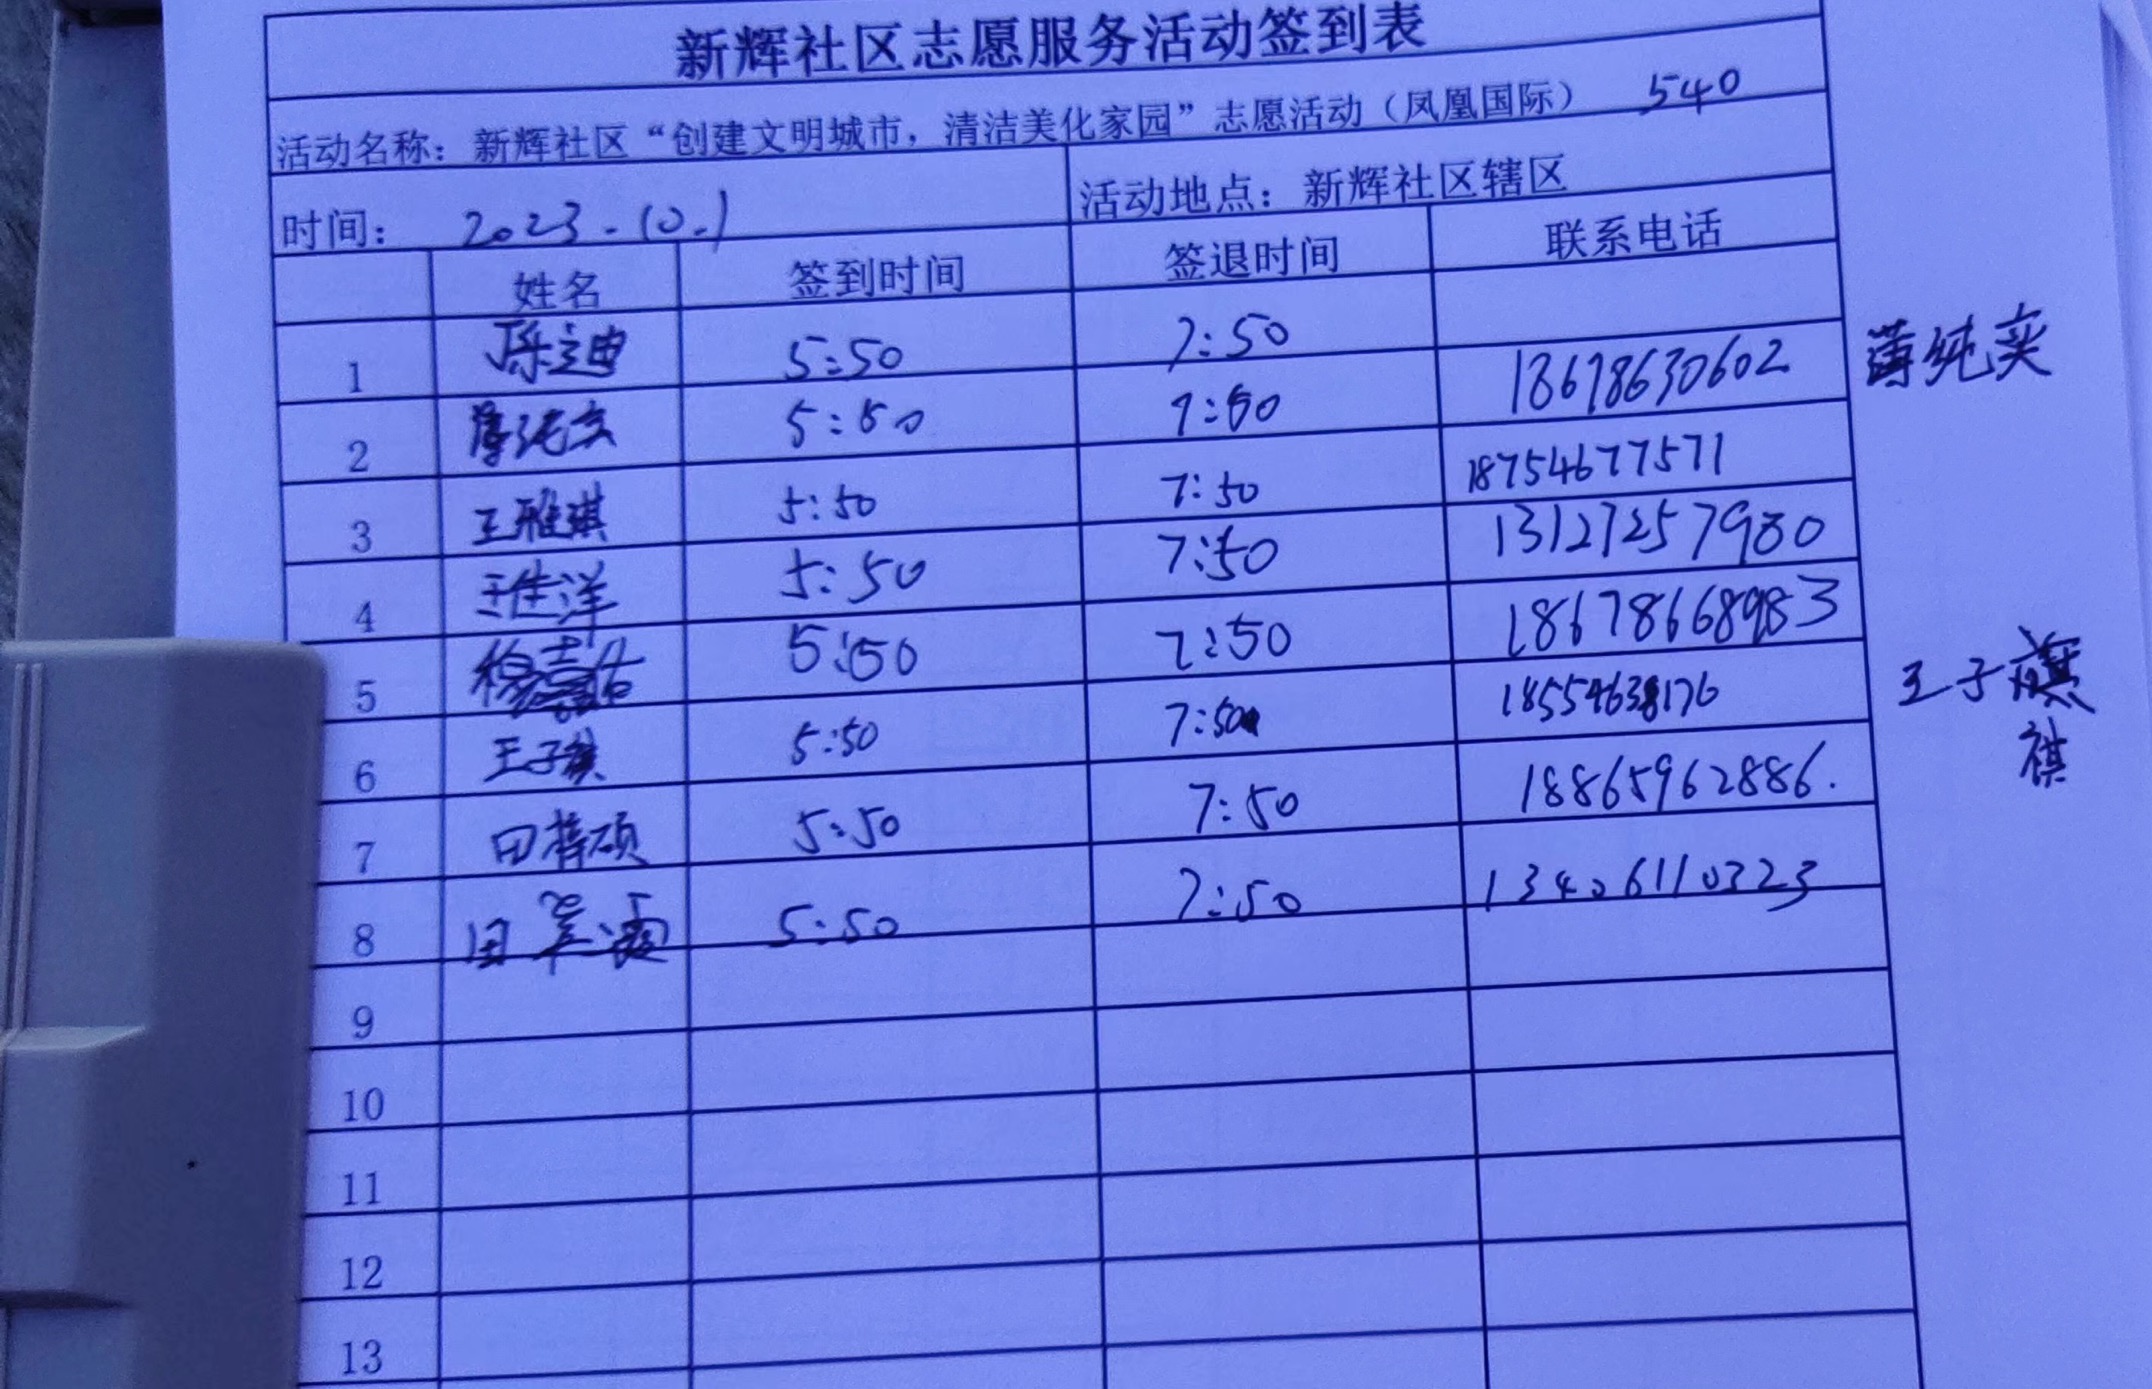 新辉社区志愿服务活动签到表
活动名称：新辉社区“创建文明城市，清洁美化家园”志愿活动（凤凰国际） 540
时间： 2023.10.1 活动地点：新辉社区辖区
姓名 签到时间 签退时间 联系电话
1 陈立迪 5:50 7:50
2 薄纯奕 5:50 7:50 18678630602 薄纯奕
3 王雅琪 5:50 7:50 18754677571
4 王佳洋 5:50 7:50 13127257980
5 5:50 7:50 18678668983
6 王子祺 5:50 7:50 18554638176 王子
祺
7 田梓硕 5:50 7:50 18865962886.
8 田 5:50 7:50 13406110323
9
10
11
12
13